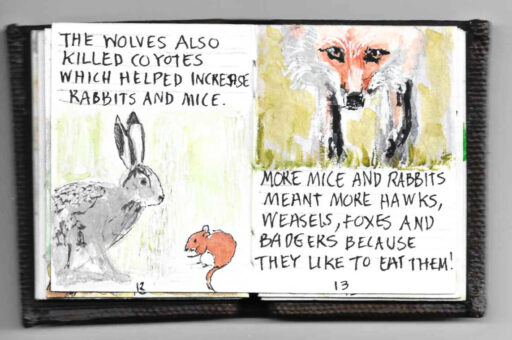 THE WOLVES ALSO
KILLED COYOTES
WHICH HELPED INCREASE
RABBITS AND MICE.
12
MORE MICE AND RABBITS
MEANT MORE HAWKS,
WEASELS, FOXES AND
BADGERS BECAUSE
THEY LIKE TO EAT THEM!
13